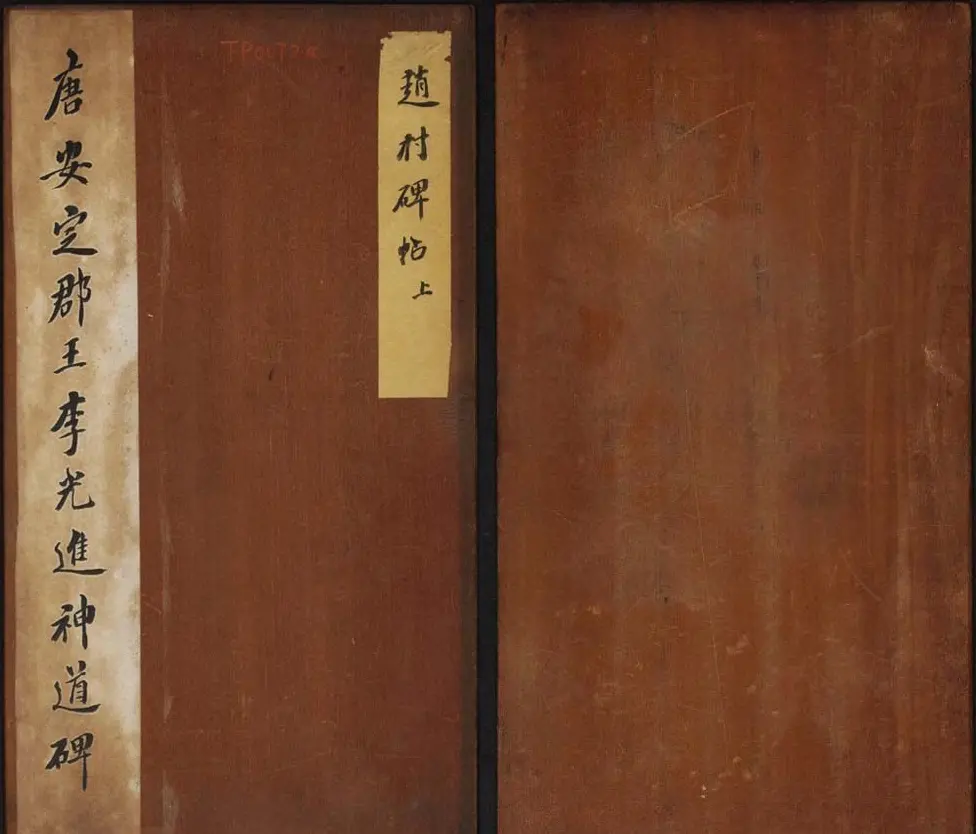 趙村碑帖上
唐安定郡王李光進神道碑